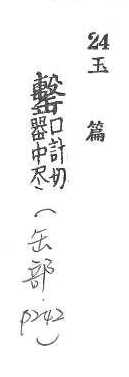 24
玉篇
罊口計切
器中尽
(缶部·p242)